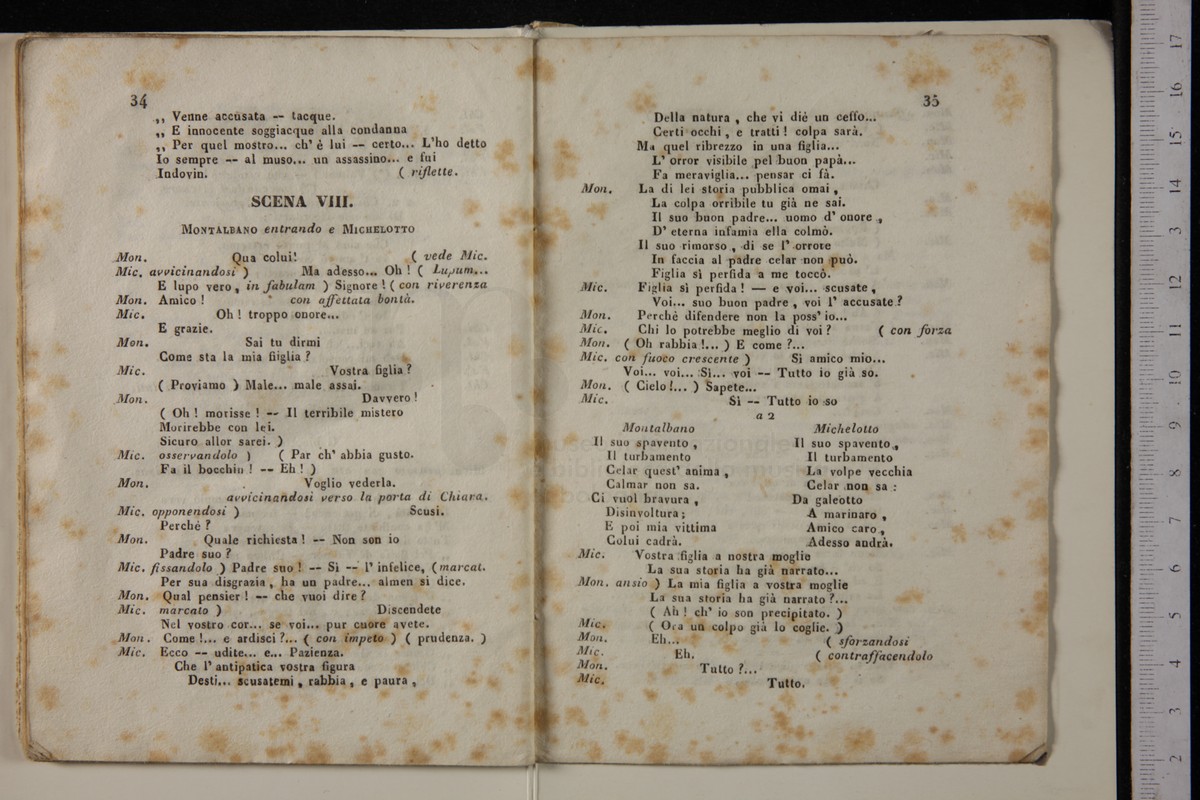 34
,, Venne accusata — tacque.
,, E innocente soggiacque alla condanna
,, Per quel mostro... ch' è lui — certo... L'ho detto
Io sempre — al muso... un assassino... e fui
Indovin. ( riflette.
SCENA VIII.
MONTALBANO entrando e MICHELOTTO
Mon. Qua colui! ( vede Mic.
Mic. avvicinandosi ) Ma adesso... Oh ! ( Lupum...
E lupo vero, in fabulam ) Signore ! ( con riverenza
Mon. Amico ! con affettata bontà.
Mic. Oh ! troppo onore...
E grazie.
Mon. Sai tu dirmi
Come sta la mia fiiglia ?
Mic. Vostra figlia ?
( Proviamo ) Male... male assai.
Mon. Davvero !
( Oh ! morisse ! — Il terribile mistero
Morirebbe con lei.
Sicuro allor sarei. )
Mic. osservandolo ) ( Par ch' abbia gusto.
Fa il bocchin ! — Eh ! )
Mon. Voglio vederla.
avvicinandosi verso la porta di Chiara.
Mic. opponendosi ) Scusi.
Perchè ?
Mon. Quale richiesta ! — Non son io
Padre suo ?
Mic. fissandolo ) Padre suo ! — Sì — l' infelice, (marcat.
Per sua disgrazia, ha un padre... almen si dice.
Mon. Qual pensier ! — che vuoi dire ?
Mic. marcato ) Discendete
Nel vostro cor... se voi... pur cuore avete.
Mon. Come !... e ardisci ?... ( con impeto ) ( prudenza. )
Mic. Ecco — udite... e... Pazienza.
Che l' antipatica vostra figura
Desti... scusatemi, rabbia, e paura,
35
Della natura, che vi diè un ceffo...
Certi occhi, e tratti ! colpa sarà.
Ma quel ribrezzo in una figlia...
L' orror visibile pel buon papà...
Fa meraviglia... pensar ci fà.
Mon. La di lei storia pubblica omai,
La colpa orribile tu già ne sai.
Il suo buon padre... uomo d' onore,
D' eterna infamia ella colmò.
Il suo rimorso, di se l' orrore
In faccia al padre celar non può.
Figlia sì perfida a me toccò.
Mic. Figlia sì perfida ! — e voi... scusate,
Voi... suo buon padre, voi l' accusate ?
Mon. Perchè difendere non la poss' io...
Mic. Chi lo potrebbe meglio di voi ? ( con forza
Mon. ( Oh rabbia !... ) E come ?...
Mic. con fuoco crescente ) Sì amico mio...
Voi... voi... Si... voi — Tutto io già so.
Mon. ( Cielo !... ) Sapete...
Mic. Sì — Tutto io so
a 2
Montalbano
Il suo spavento,
Il turbamento
Celar quest' anima,
Calmar non sa.
Ci vuol bravura,
Disinvoltura;
E poi mia vittima
Colui cadrà.
Michelotto
Il suo spavento,
Il turbamento
La volpe vecchia
Celar non sa :
Da galeotto
A marinaro,
Amico caro,
Adesso andrà.
Mic. Vostra figlia a nostra moglie
La sua storia ha già narrato...
Mon. ansio ) La mia figlia a vostra moglie
La sua storia ha già narrato ?...
( Ah ! ch' io son precipitato. )
Mic. ( Ora un colpo già lo coglie. )
Mon. Eh... ( sforzandosi
Mic. Eh. ( contraffacendolo
Mon. Tutto ?...
Mic. Tutto.
2 3 4 5 6 7 8 9 10 11 12 13 14 15 16 17